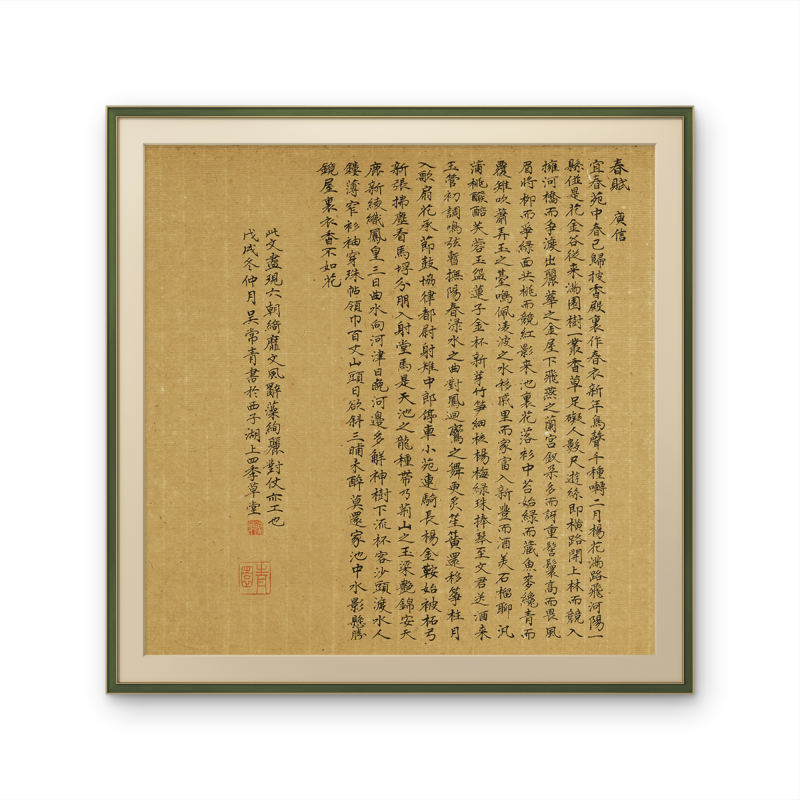 春賦 庾信
宜春苑中春已歸披香殿裏作春衣新年鳥聲千種囀二月楊花滿路飛河陽一
縣併是花金谷從來滿園樹一叢香草足礙人數尺遊絲即橫路開上林而競入
擁河橋而爭渡出麗華之金屋下飛燕之蘭宮釵朵多而訝重髻鬟高而畏風
眉將柳而爭綠面共桃而競紅影來池裏花落衫中苔始綠而藏魚麥纔青而
覆雉吹簫弄玉之臺鳴佩凌波之水移戚里而家富入新豐而酒美石榴聊汎
蒲桃醱醅芙蓉玉盌蓮子金杯新芽竹笋細核楊梅綠珠捧琴至文君送酒來
玉管初調鳴弦暫撫陽春淥水之曲對鳳迴鸞之舞更炙笙簧還移箏柱月
入歌扇花承節鼓協律都尉射雉中郎停車小苑連騎長楊金鞍始被柘弓
新張拂塵看馬埒分朋入射堂馬是天池之龍種帶乃荊山之玉梁艷錦安天
鹿新綾織鳳皇三日曲水向河津日晚河邊多解神樹下流杯客沙頭渡水人
鏤薄窄衫袖穿珠帖領巾百丈山頭日欲斜三晡未醉莫還家池中水影懸勝
鏡屋裏衣香不如花
此文盡現六朝綺靡文風辭藻絢麗對仗亦工也
戊戌冬仲月吴常青書於西子湖上四季草堂